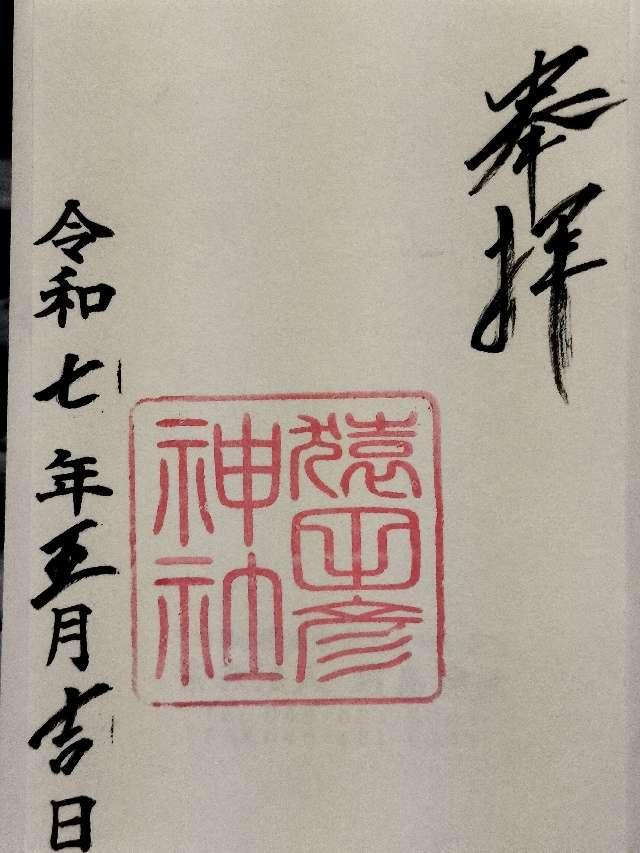 奉拝
猿田彦
神社
令和七年五月吉日